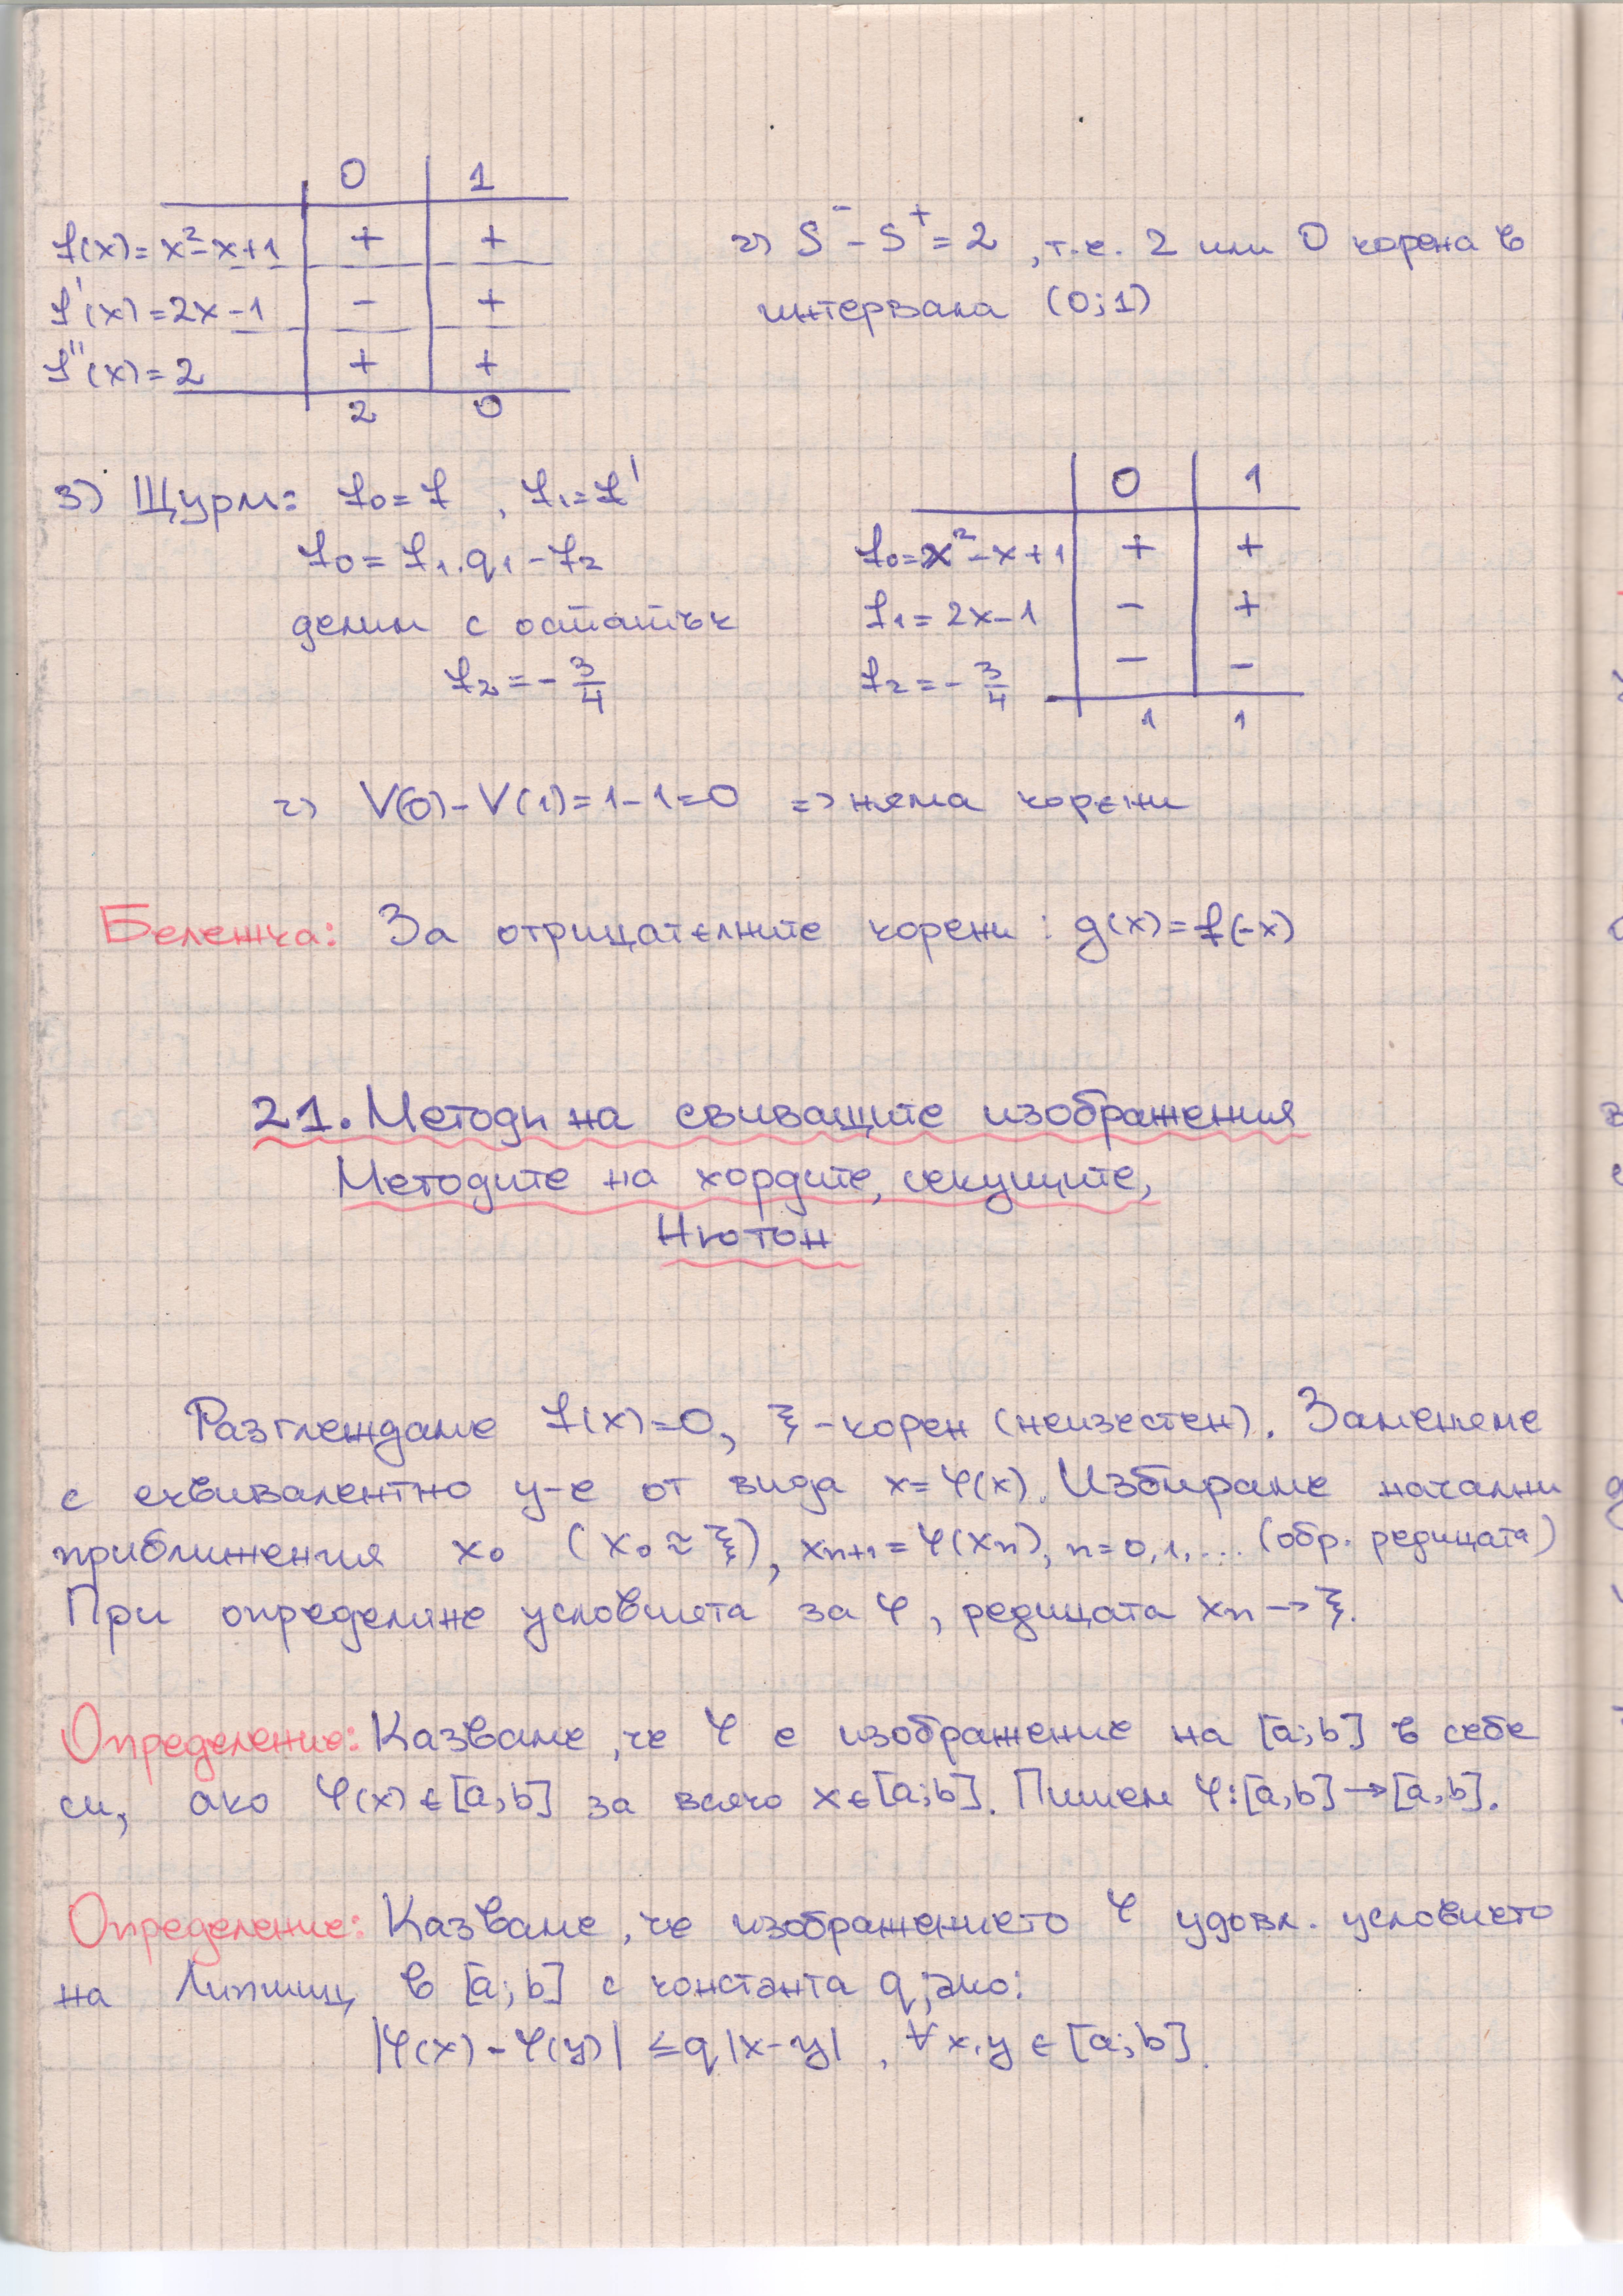 0 1
f(x)=x²-x+1 + +
f'(x)=2x-1 - +
f''(x)=2 + +
2 0
=> S⁻-S⁺=2, т.е. 2 или 0 корена в
интервала (0;1)
3) Щурм: f₀=f, f₁=f'
f₀=f₁.q₁-f₂
делим с остатък
f₂=-3/4
0 1
f₀=x²-x+1 + +
f₁=2x-1 - +
f₂=-3/4 - -
1 1
=> V(0)-V(1)=1-1=0 => няма корени
Бележка: За отрицателните корени: g(x)=f(-x)
21. Методи на свиващите изображения
Методите на хордите, секущите,
Нютон
Разглеждаме f(x)=0, ξ-корен (неизестен). Заменяме
с еквивалентно у-е от вида x=φ(x). Избираме начални
приближения x₀ (x₀≈ξ), xₙ₊₁=φ(xₙ), n=0,1,... (обр. редицата)
При определяне условията за φ, редицата xₙ→ξ.
Определение: Казваме, че φ е изображение на [a;b] в себе
си, ако φ(x)∈[a,b] за всяко x∈[a;b]. Пишем φ:[a,b]→[a,b].
Определение: Казваме, че изображението φ удовл. условието
на Липшиц в [a;b] с константа q, ако:
|φ(x)-φ(y)| ≤q|x-y|, ∀x,y∈[a;b].